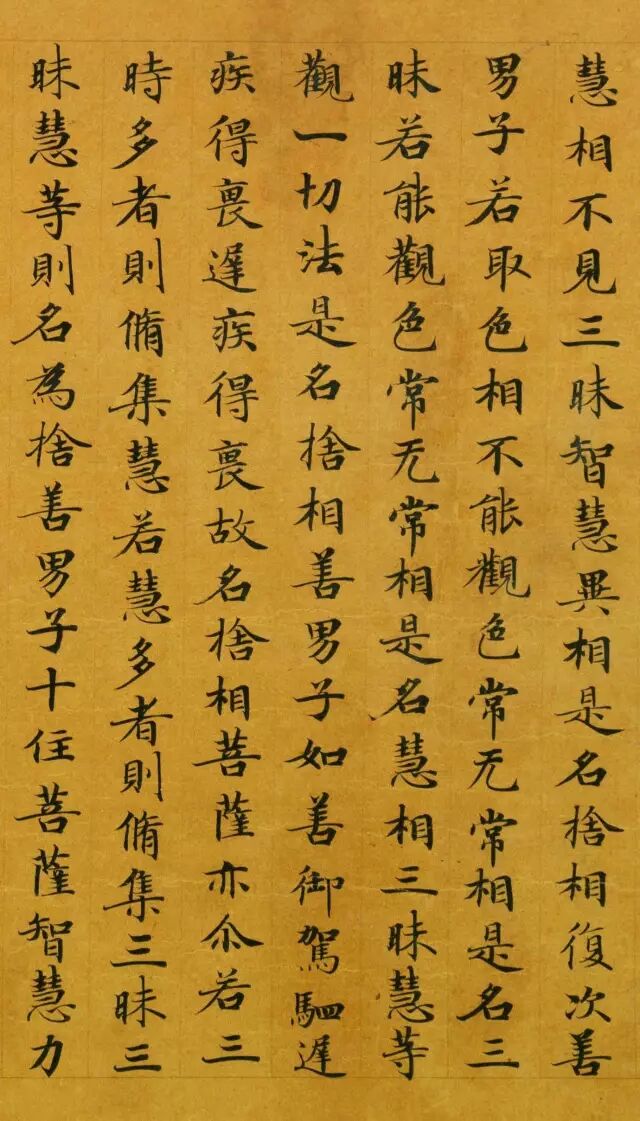 慧相不見三昧智慧異相是名捨相復次善
男子若取色相不能觀色常无常相是名三
昧若能觀色常无常相是名慧相三昧慧等
觀一切法是名捨相善男子如善御駕駟遲
疾得所遲疾得所故名捨相菩薩亦尒若三
昧多者則脩集慧若慧多者則脩集三昧三
昧慧等則名為捨善男子十住菩薩智慧力